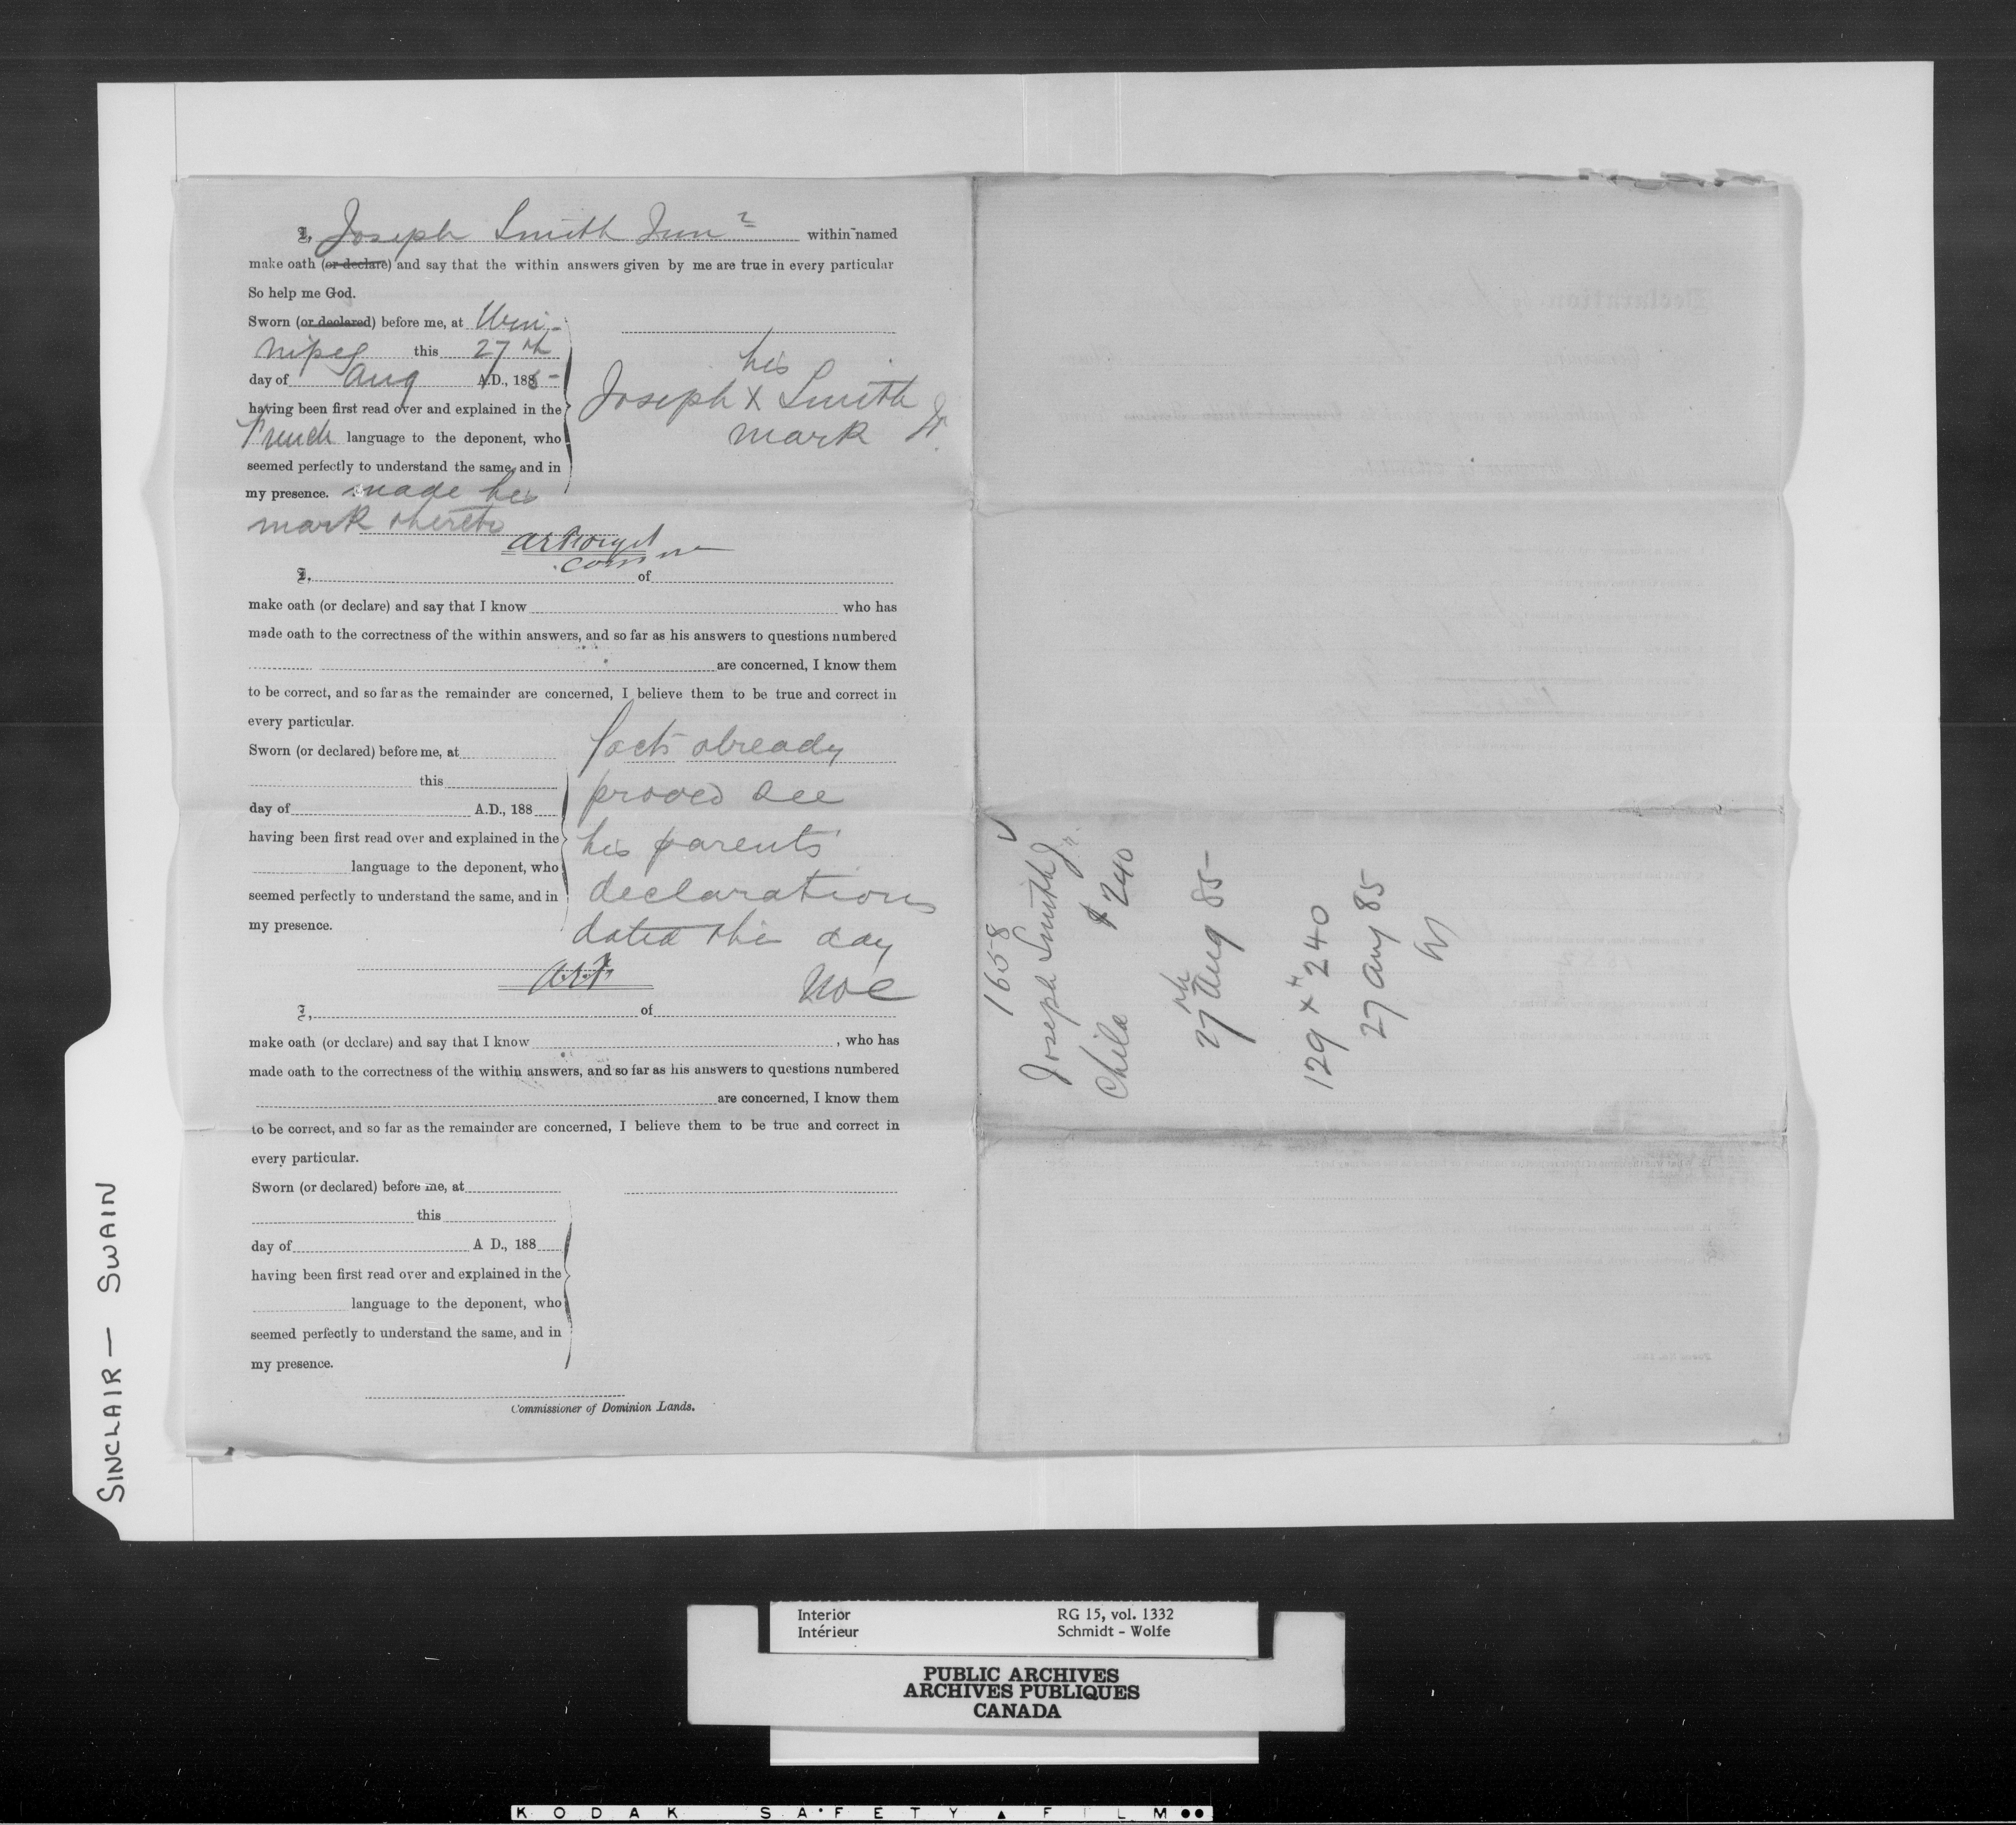 I, Joseph Smith Junr within named
make oath (or declare) and say that the within answers given by me are true in every particular
So help me God.
Sworn (or declared) before me, at Win-
nipeg this 27th
day of Aug A.D., 1885
having been first read over and explained in the
French language to the deponent, who
seemed perfectly to understand the same, and in
my presence. made his
mark thereto
his
Joseph X Smith Jr.
mark
I, of
make oath (or declare) and say that I know who has
made oath to the correctness of the within answers, and so far as his answers to questions numbered
are concerned, I know them
to be correct, and so far as the remainder are concerned, I believe them to be true and correct in
every particular.
Sworn (or declared) before me, at
this
day of A.D., 188
having been first read over and explained in the
language to the deponent, who
seemed perfectly to understand the same, and in
my presence.
facts already
proved see
his parents'
declarations
dated this day
I, of
make oath (or declare) and say that I know , who has
made oath to the correctness of the within answers, and so far as his answers to questions numbered
are concerned, I know them
to be correct, and so far as the remainder are concerned, I believe them to be true and correct in
every particular.
Sworn (or declared) before me, at
this
day of A D., 188
having been first read over and explained in the
language to the deponent, who
seemed perfectly to understand the same, and in
my presence.
Commissioner of Dominion Lands.
1658
Joseph Smith Jr.
Child $240
27th Aug 85
129 x 240
27 Aug 85
SINCLAIR — SWAIN
Interior RG 15, vol. 1332
Intérieur Schmidt - Wolfe
PUBLIC ARCHIVES
ARCHIVES PUBLIQUES
CANADA
KODAK SAFETY ▲ FILM ●●